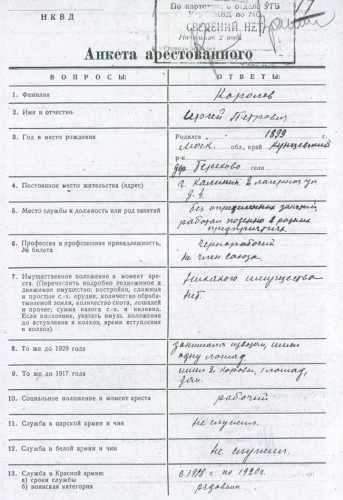 НКВД
По картотеке отдела
СВЕДЕНИЙ НЕТ
17
Анкета арестованного
ВОПРОСЫ: ОТВЕТЫ:
1. Фамилия Королев
2. Имя и отчество Сергей Петрович
3. Год и место рождения Родился 1899
Моск. обл, край Кунцевский
р-н
дер Терехово село
4. Постоянное место жительства (адрес) г. Калинин. 2 лагерная ул
д. 4.
5. Место службы и должность или род занятий без определенных занятий,
работал поденно в разных
предприятиях.
6. Профессия и профсоюзная принадлежность, Чернорабочий
№ билета Не член союза.
7. Имущественное положение в момент аре- Никакого имущества
ста. (Перечислить подробно недвижимое и Нет.
движимое имущество: постройки, сложные
и простые с.-х. орудия, количество обраба-
тываемой земли, количество скота, лошадей
и прочее; сумма налога с.-х. и индивид.
Если колхозник, указать имущ. положение
до вступления в колхоз, время вступления
в колхоз)
8. То же до 1929 года занимался извозом, имел
одну лошадь
9. То же до 1917 года имел 2 коровы, 1 лошадь,
дом.
10. Социальное положение в момент ареста рабочий
11. Служба в царской армии и чин Не служил.
12. Служба в белой армии и чин Не служил.
13. Служба в Красной армии: с 1918 г. по 1920г.
а) сроки службы
б) воинская категория рядовым